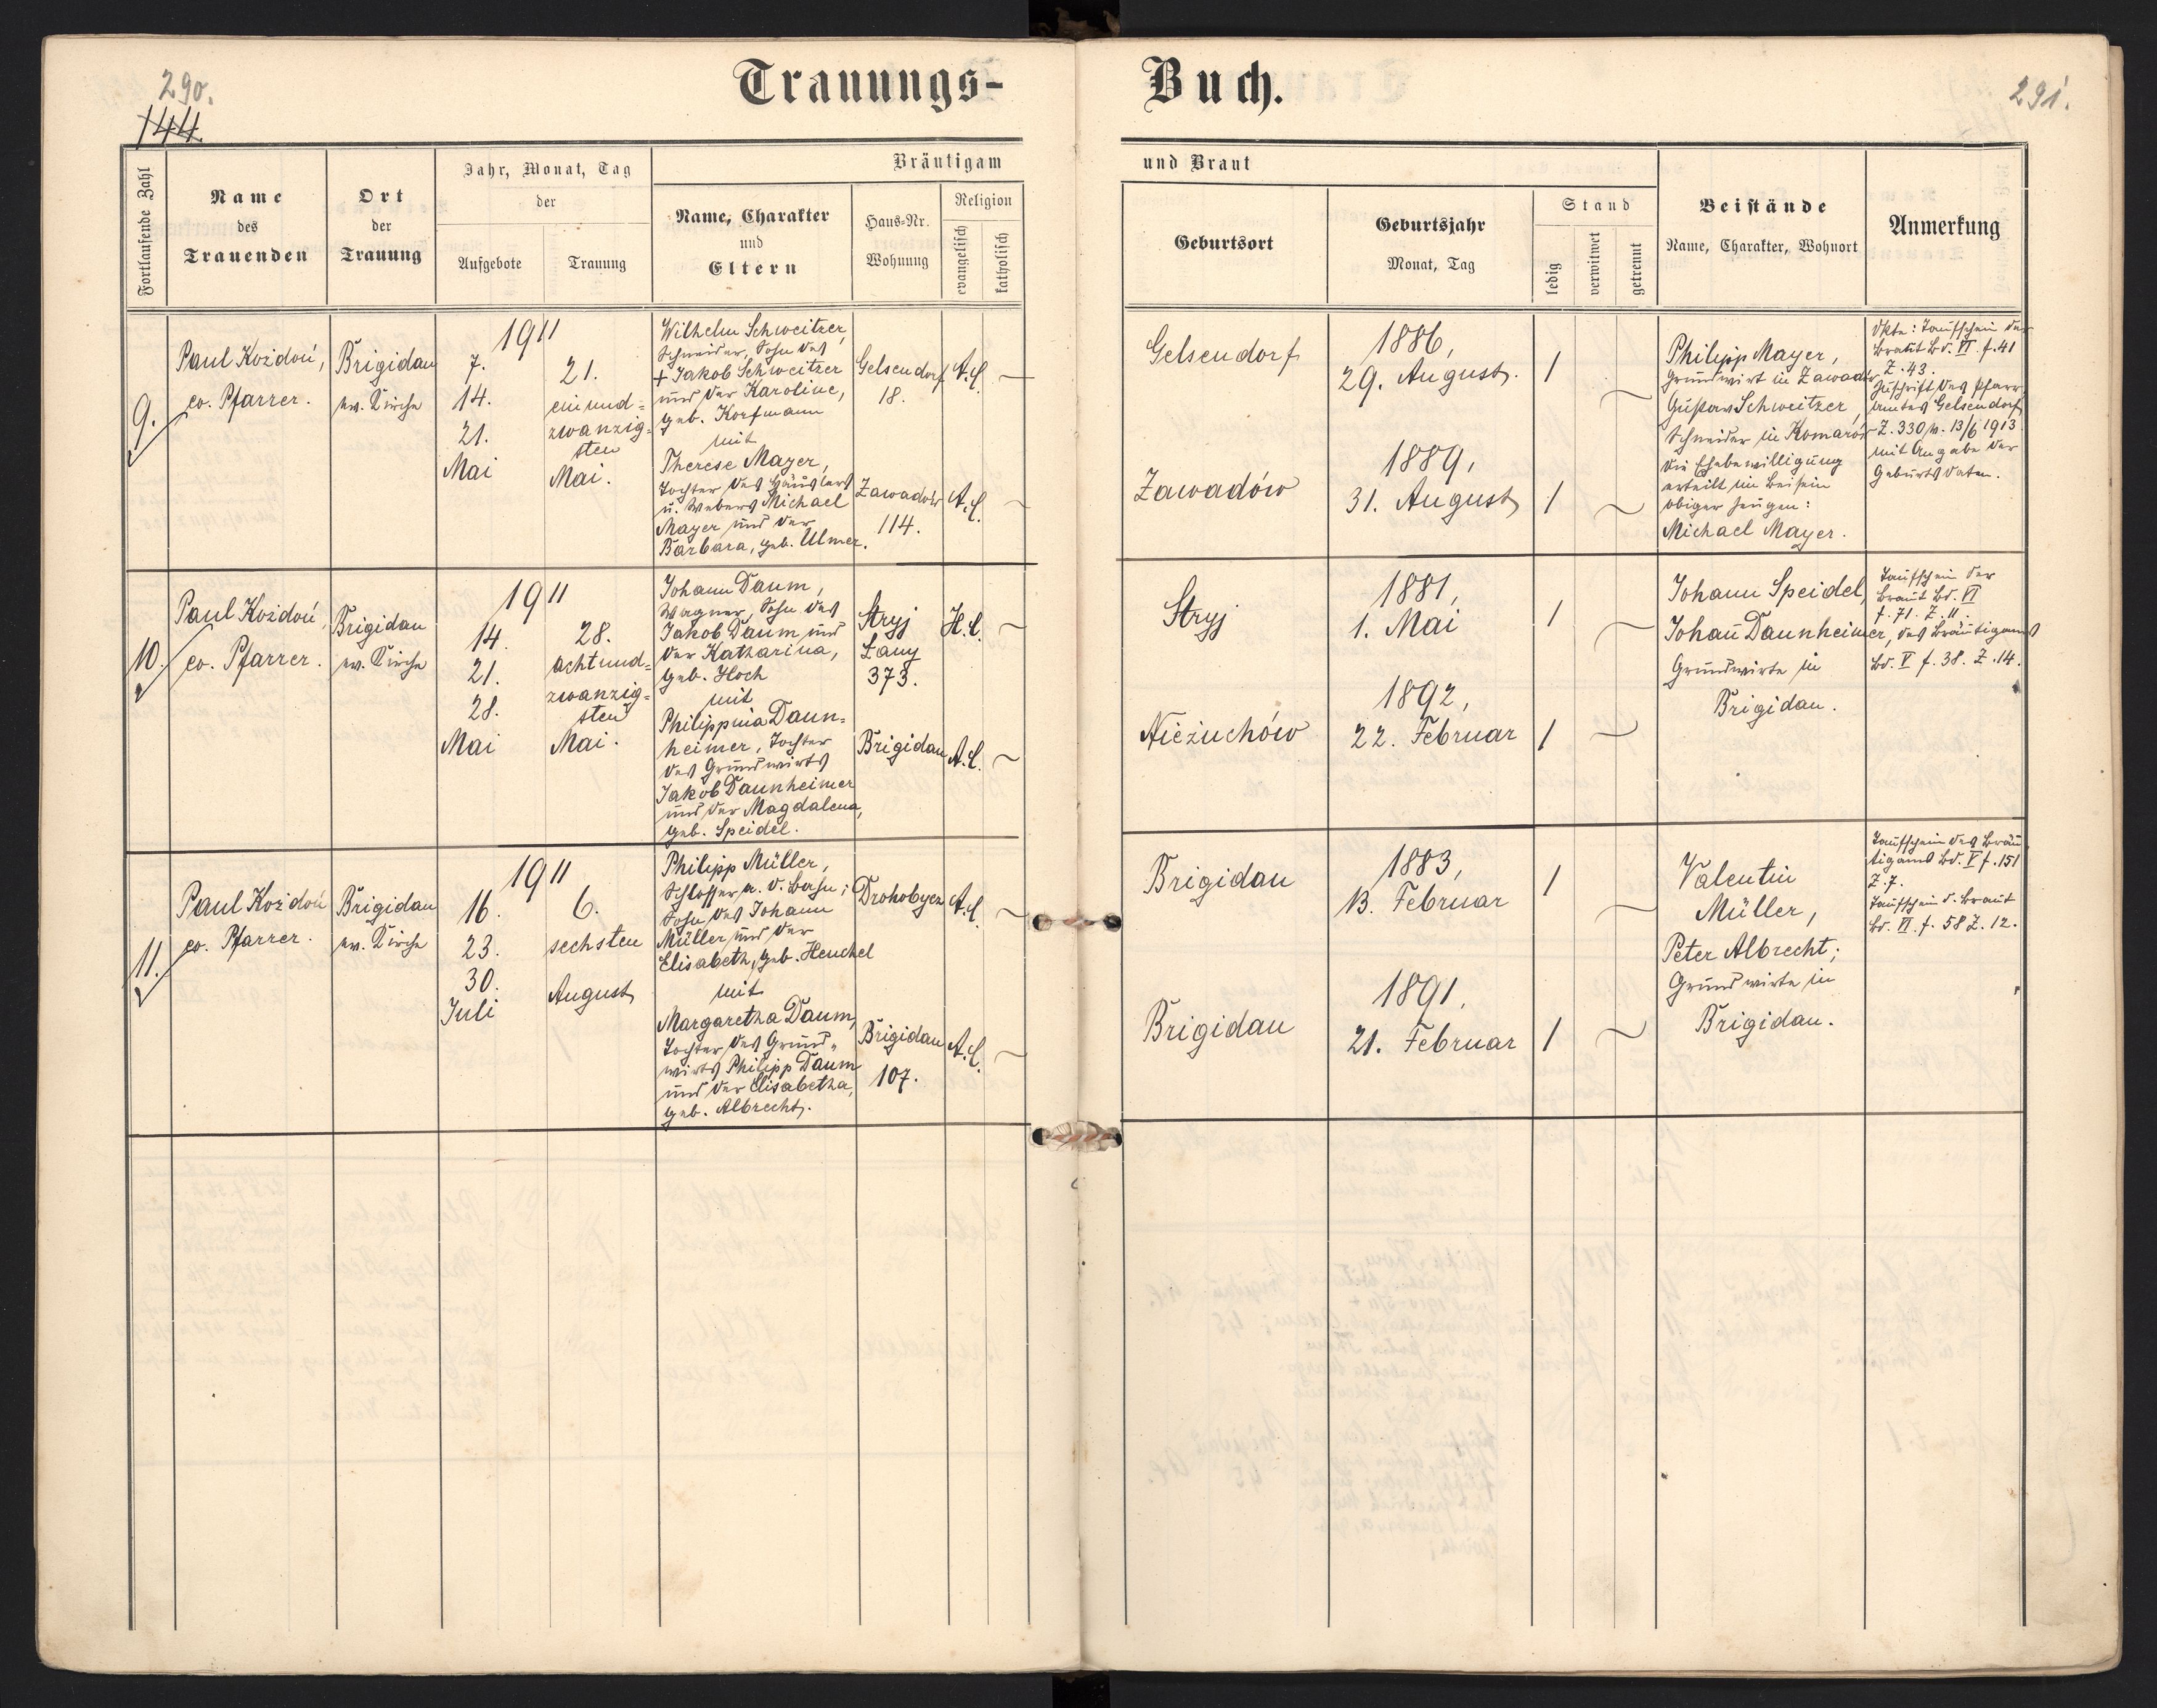 290.
144.
Trauungs-
Buch.
291.
Fortlaufende Zahl
Name
des
Trauenden
Ort
der
Trauung
Jahr, Monat, Tag
der
Aufgebote
Trauung
Bräutigam
Name, Charakter
und
Eltern
Haus-Nr.
Wohnung
Religion
evangelisch
katholisch
und Braut
Geburtsort
Geburtsjahr
Monat, Tag
Stand
ledig
verwitwet
getrennt
Beistände
Name, Charakter, Wohnort
Anmerkung
9.
Paul Kożdoń,
ev. Pfarrer.
Brigidau
ev. Kirche
1911
7.
14.
21.
Mai
21.
ein und-
zwanzig-
sten
Mai.
Wilhelm Schweitzer,
Schneider, Sohn des
+ Jakob Schweitzer
und der Karoline,
geb. Korfmann
mit
Therese Mayer,
Tochter des Häuslers
u. Webers Michael
Mayer und der
Barbara, geb. Ulmer.
Gelsendorf
18.
A.C. —
Zawadów
114.
A.C. ~
Gelsendorf
1886,
29. August.
1
~
Zawadów
1889,
31. August
1
~
Philipp Mayer,
Grundwirt in Zawadów
Gustav Schweitzer,
Schneider in Komarów
Die Ehebewilligung
erteilt im Beisein
obiger Zeugen:
Michael Mayer.
Dkte: Taufschein der
Braut Bd. VI. f. 41
Z. 43.
Zuschrift des Pfarr
amtes Gelsendorf
Z. 330 v. 13/6 1913
mit Angabe der
Geburtsdaten.
10.
Paul Kożdoń,
ev. Pfarrer.
Brigidau
ev. Kirche
1911
14.
21.
28.
Mai
28.
achtund-
zwanzig-
sten
Mai.
Johann Daum,
Wagner, Sohn des
Jakob Daum und
der Katharina,
geb. Hoch
mit
Philippina Daun-
heimer, Tochter
des Grundwirts
Jakob Daunheimer
und der Magdalena,
geb. Speidel.
Stryj
Łany
373.
H.C. ~
Brigidau
A.C. ~
Stryj
1881,
1. Mai
1
~
Nieżuchów
1892,
22. Februar
1
~
Johann Speidel,
Johañ Daunheimer,
Grundwirte in
Brigidau.
Taufschein der
Braut Bd. VI
f. 71. Z. 11.
des Bräutigams
Bd. V f. 38. Z. 14.
11.
Paul Kożdoń
ev. Pfarrer.
Brigidau
ev. Kirche
1911
16.
23.
30.
Juli
6.
sechsten
August
Philipp Müller,
Schlosser a. d. Bahn;
Sohn des Johann
Müller und der
Elisabeth, geb. Henchel
mit
Margaretha Daum,
Tochter des Grund-
wirts Philipp Daum
und der Elisabetha,
geb. Albrecht.
Drohobycz
A.C. ~
Brigidau
107.
A.C. ~
Brigidau
1883,
13. Februar
1
~
Brigidau
1891.
21. Februar
1
~
Valentin
Müller,
Peter Albrecht;
Grundwirte in
Brigidau.
Taufschein des Bräu
tigams Bd. V f. 151
Z. 7.
Taufschein d. Braut
Bd. VI. f. 58 Z. 12.